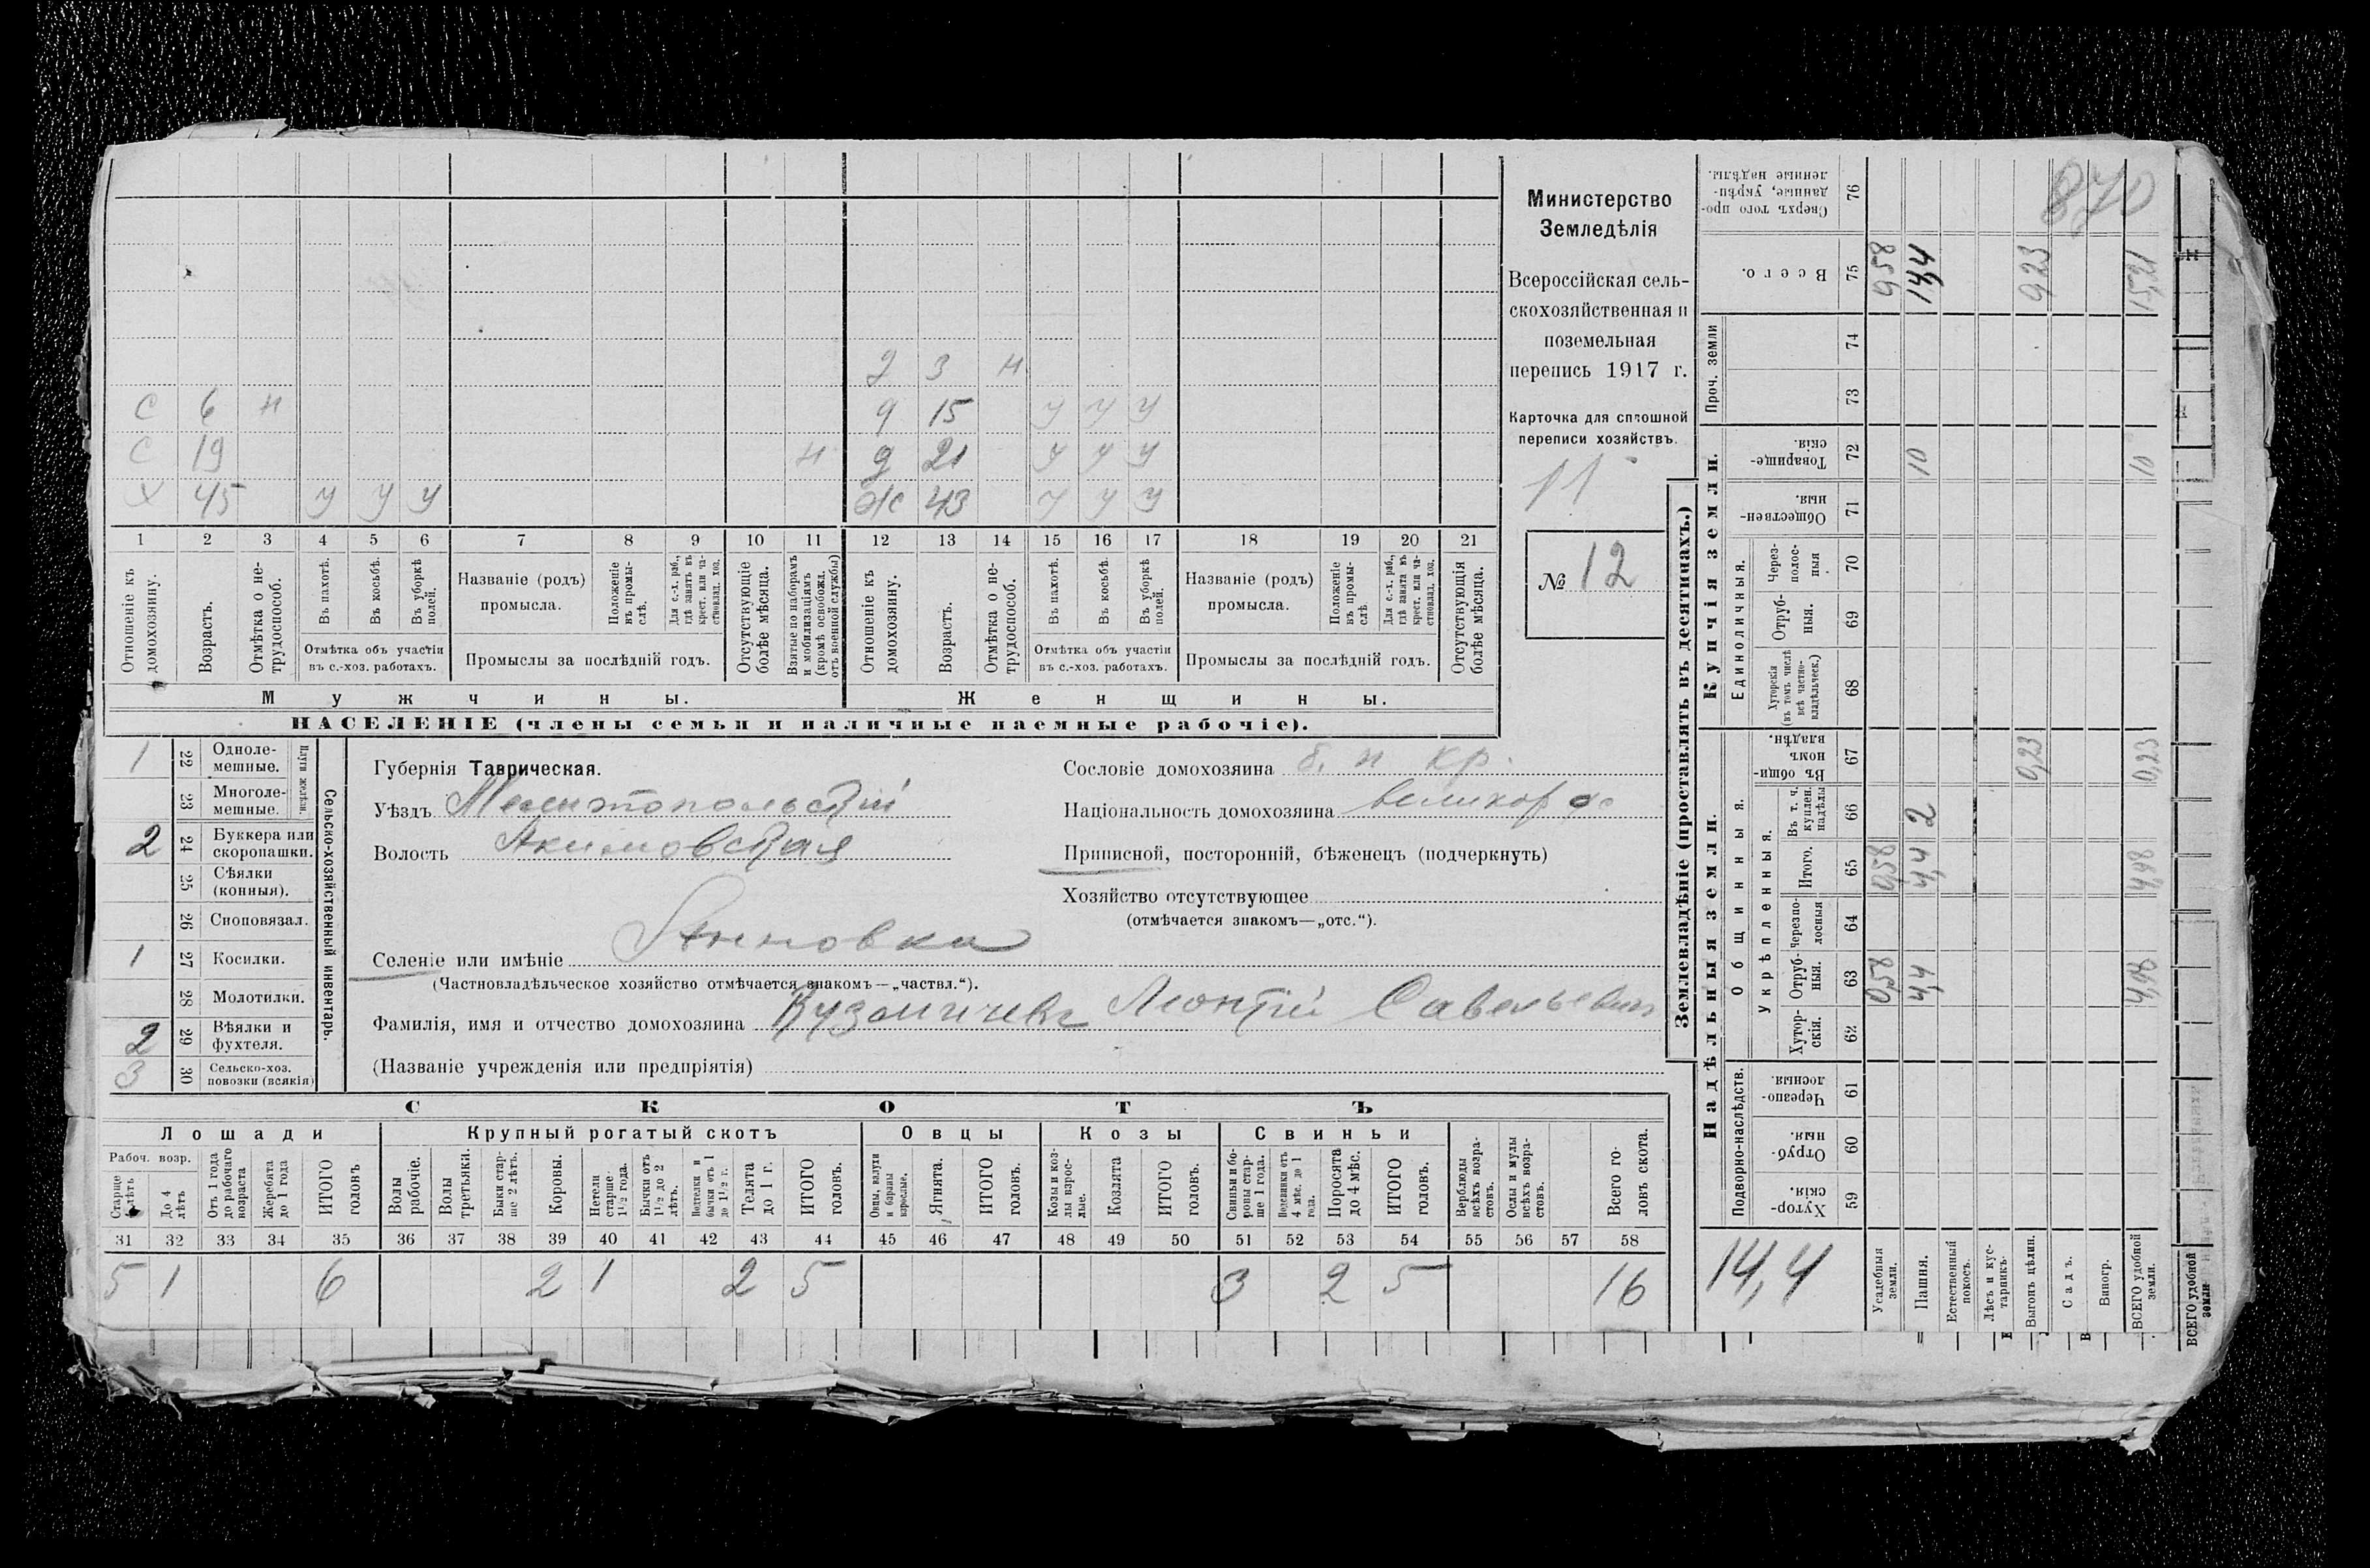 870
Министерство
Земледѣлія
Всероссійская сель-
скохозяйственная и
поземельная
перепись 1917 г.
Карточка для сплошной
переписи хозяйствъ.
11
№ 12
2 3 н
С 6 н
9 15 у у у
С 19 н
д 21 у у у
Х 45 у у у
Ж 43 у у у
1 2 3 4 5 6 7 8 9 10 11 12 13 14 15 16 17 18 19 20 21
Отношеніе къ домохозяину.
Возрастъ.
Отмѣтка о не-трудоспособ.
Въ пахотѣ.
Въ косьбѣ.
Въ уборкѣ полей.
Отмѣтка объ участіи
въ с.-хоз. работахъ.
Названіе (родъ)
промысла.
Положеніе въ промы-слѣ.
Для с.-х. раб., гдѣ занятъ въ крест. или ча-стновлад. хоз.
Промыслы за послѣдній годъ.
Отсутствующіе болѣе мѣсяца.
Взятые по наборамъ и мобилизаціямъ (кромѣ освобожд. отъ военной службы)
Отношеніе къ домохозяину.
Возрастъ.
Отмѣтка о не-трудоспособ.
Въ пахотѣ.
Въ косьбѣ.
Въ уборкѣ полей.
Отмѣтка объ участіи
въ с.-хоз. работахъ.
Названіе (родъ)
промысла.
Положеніе въ промы-слѣ
Для с.-х. раб., гдѣ занята въ крест. или ча-стновлад. хоз.
Промыслы за послѣдній годъ.
Отсутствующія болѣе мѣсяца.
Мужчины.
Женщины.
НАСЕЛЕНІЕ (члены семьи и наличные наемные рабочіе).
Сельско-хозяйственный инвентарь.
Плуги желѣзн.
1 22 Одноле-мешные.
23 Многоле-мешные.
2 24 Буккера или скоропашки.
25 Сѣялки (конныя).
26 Сноповязал.
1 27 Косилки.
28 Молотилки.
2 29 Вѣялки и фухтеля.
3 30 Сельско-хоз. повозки (всякія)
Губернія Таврическая.
Уѣздъ Мелитопольскій
Волость Акимовская
Селеніе или имѣніе Анновка
(Частновладѣльческое хозяйство отмѣчается знакомъ—„частвл.“).
Фамилія, имя и отчество домохозяина Кузьмичевъ Леонтій Савельевич
(Названіе учрежденія или предпріятія)
Сословіе домохозяина б. н кр.
Національность домохозяина великор
Приписной, посторонній, бѣженецъ (подчеркнуть)
Хозяйство отсутствующее
(отмѣчается знакомъ—„отс.“).
СКОТЪ
Лошади
Крупный рогатый скотъ
Овцы
Козы
Свиньи
Рабоч. возр.
Старше лѣтъ
До 4 лѣтъ
Отъ 1 года до рабочаго возраста
Жеребята до 1 года
ИТОГО головъ
Волы рабочіе.
Волы третьяки.
Быки стар-ше 2 лѣтъ.
Коровы.
Нетели старше 1½ года.
Бычки отъ 1½ до 2 лѣтъ.
Подтелки и бычки отъ 1 до 1½ г.
Телята до 1 г.
ИТОГО головъ.
Овцы, валухи и бараны взрослые.
Ягнята.
ИТОГО головъ.
Козы и коз-лы взрос-лые.
Козлята
ИТОГО головъ.
Свиньи и бо-ровы стар-ше 1 года.
Подсвинки отъ 4 мѣс. до 1 года.
Поросята до 4 мѣс.
ИТОГО головъ.
Верблюды всѣхъ возра-стовъ.
Ослы и мулы всѣхъ возра-стовъ.
Всего го-ловъ скота.
31 32 33 34 35 36 37 38 39 40 41 42 43 44 45 46 47 48 49 50 51 52 53 54 55 56 57 58
5 1 6 2 1 2 5 3 2 5 16
Землевладѣніе (проставлять въ десятинахъ.)
Купчія земли.
Надѣльныя земли.
Проч. земли
Единоличныя.
Общинныя.
Укрѣпленныя.
Подворно-наслѣдств.
Сверхъ того про-данные, укрѣп-ленные надѣлы. 76
Всего. 75 9,58 14,4 9,23 15,21
74
73
Товарище-скія. 72 10 10
Обществен-ныя. 71
Через-полос-ныя 70
Отруб-ныя. 69
Хуторскія (въ томъ числѣ всѣ частно-владѣльческ.) 68
Въ общин-номъ владѣн. 67 0,23 0,23
Въ т. ч. куплен. надѣлы 66 2
Итого. 65 0,58 4,4 4,98
Черезпо-лосныя 64
Отруб-ныя. 63 0,58 4,4 4,98
Хутор-скія. 62
Черезпо-лосныя. 61
Отруб-ныя. 60
Хутор-скія. 59
14,4
Усадебныя земли.
Пашня.
Естественный покосъ.
Лѣсъ и кус-тарникъ.
Выгонъ цѣлин.
Садъ.
Виногр.
ВСЕГО удобной земли.
ВСЕГО удобной земли